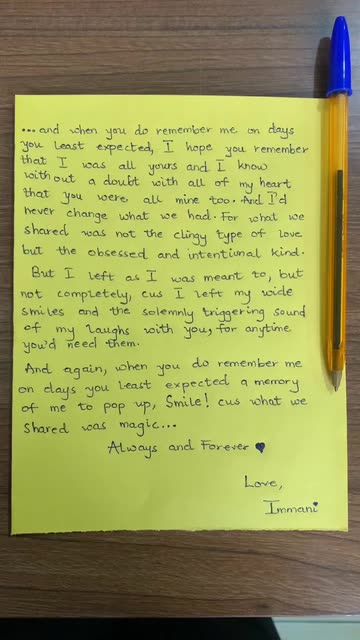 ...and when you do remember me on days
you least expected, I hope you remember
that I was all yours and I know
without a doubt with all of my heart
that you were all mine too. And I'd
never change what we had. For what we
shared was not the clingy type of love
but the obsessed and intentional kind.
But I left as I was meant to, but
not completely, cus I left my wide
smiles and the solemnly triggering sound
of my laughs with you, for anytime
you'd need them.
And again, when you do remember me
on days you least expected a memory
of me to pop up, Smile! cus what we
shared was magic...
Always and Forever ♥
Love,
Immani